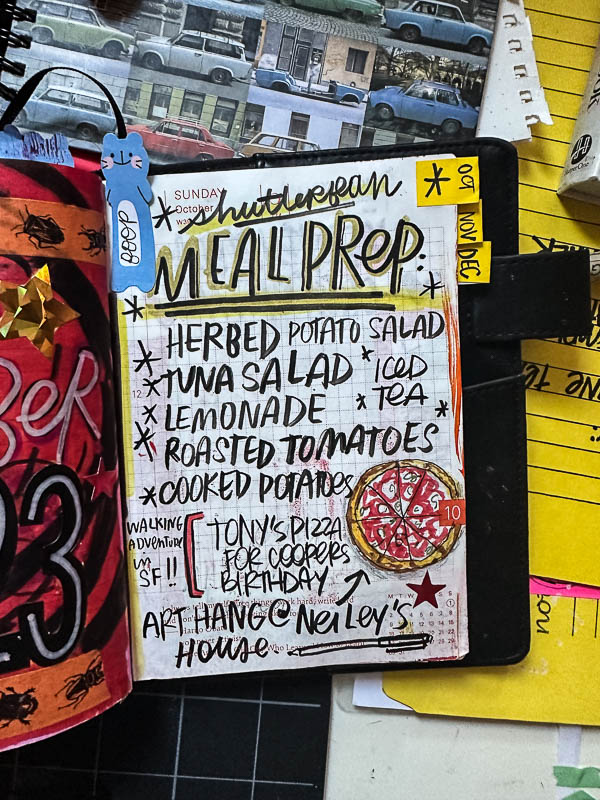 SUNDAY
October
* shutterbean
MEAL PREP:
HERBED POTATO SALAD
TUNA SALAD
ICED TEA
LEMONADE
ROASTED TOMATOES
COOKED POTATOES
WALKING ADVENTURE in SF!!
TONY'S PIZZA
FOR COOPERS
BIRTHDAY
ART HANG @ Neiley's
House
OCT
NOV
DEC
BOOP
10
12
BER
23